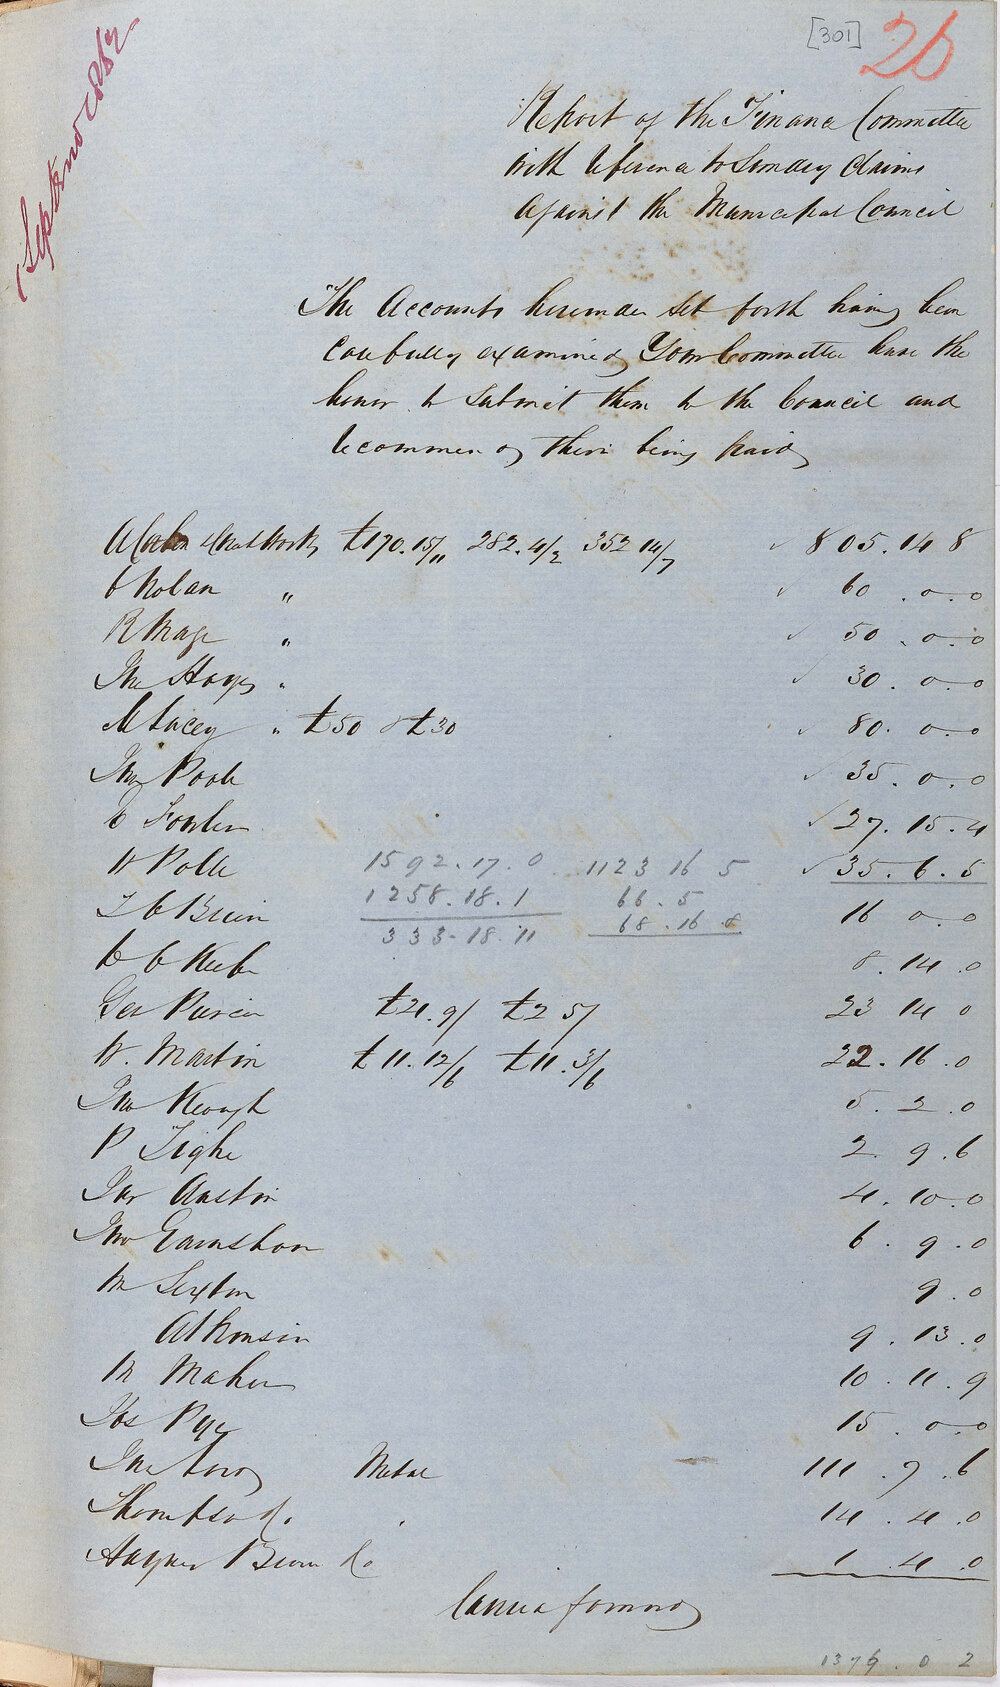 [301] 26
1 Septemb 1862
Report of the Finance Committee
with reference to Sundry Claims
against the Municipal Council
The Accounts hereunder set forth having been
carefully examined Your Committee have the
honor to submit them to the Council and
recommend their being paid
Contract Works £170.15/11 282.4/2 352 14/7 ✓ 805.14 8
C Nolan " ✓ 60.0.0
R Mage " ✓ 50.0.0
Jno Hayes " ✓ 30.0.0
M Lacey " £50 & £30 ✓ 80.0.0
Jno Poole ✓ 35.0.0
D Fowler ✓ 27.15.4
W Polle ✓ 35.6.5
1592.17.0 1123 16 5
1258.18.1 66.5
333-18.11 68.16.8
T C Brein 16 0.0
8.14.0
Geo Pierce £21.9/ £2 5/ 23 14 0
W. Martin £11.12/6 £11.3/6 22.16.0
Jno Keough 5.2.0
P Tighe 2.9.6
Jno Austin 4.10.0
Jno Earnshaw 6.9.0
M Sexton 9.0
Atkinson 9.13.0
M Maher 10.11.9
Jos Pye 15.0.0
Jno Metal 111.9.6
Thompson 14.4.0
Haynes & Co 1.4.0
Carried forward
1376.0 2